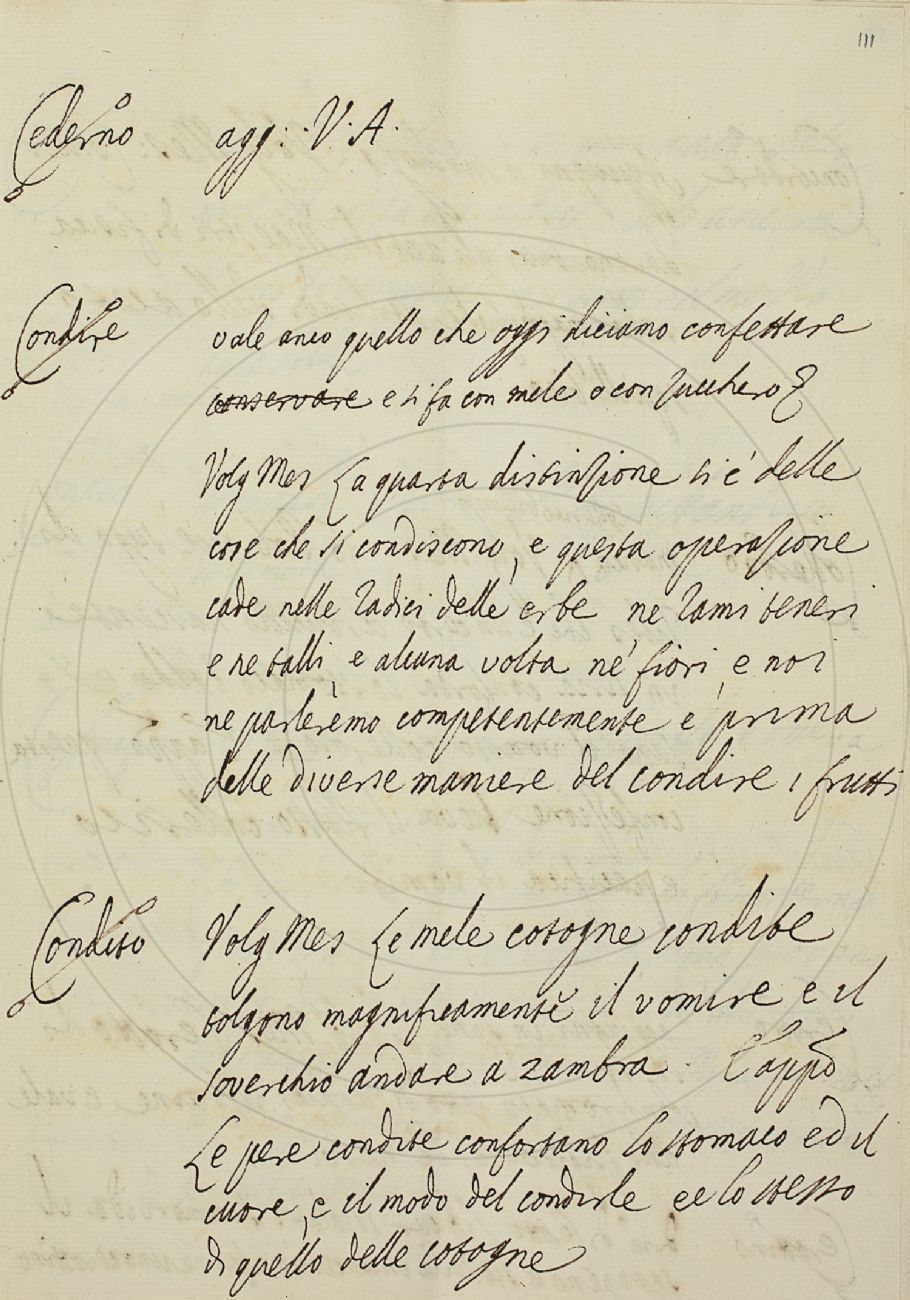 111
Cederno agg: V. A.
Condire vale anco quello che oggi diciamo confettare
conservare e si fa con mele o con zucchero
Volg Mes La quarta distinzione si è delle
cose che si condiscono, e questa operazione
cade nelle radici delle erbe ne rami teneri
e ne talli, e alcuna volta né fiori, e noi
ne parleremo competentemente e prima
delle diverse maniere del condire i frutti
Condito Volg Mes Le mele cotogne condite
tolgono magnificamente il vomire e il
soverchio andare a zambra. E appo
Le pere condite confortano lo stomaco ed il
cuore, e il modo del condirle ee lo stesso
di quello delle cotogne